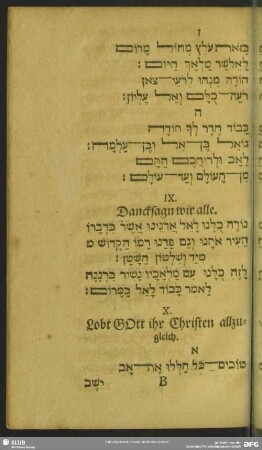 ז
לאשר מלאך היום:
הורה מנהו לרעי־צאן
רעה־כלם ואל עליון:
ה
כבוד הדר לך תורה
גואל בן־אל ובן־עלמה:
לאב ולרוח הם
מן־העולם ועד־עולם:
IX.
Dancksagn wir alle.
נורה כלנו לאל אדנינו אשר בדברו
העיר אתנו וגם פדנו דמו הקדוש מ
מיד ושלטון השטן:
לזה כלנו עם מלאכיו נשיר ברננה
לאמר כבוד לאל במרום:
X.
Lobt GOtt ihr Christen allzu-
gleich.
א
טובים־כל הללו את־אב
B ישב
SLUB